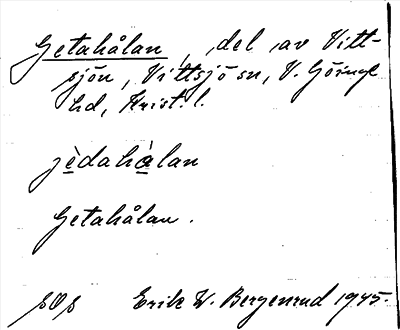 Getahålan, del av Vitt-
sjön, Vittsjö sn, V. Göinge
hd, Krist. l.
jèdahàlan
Getahålan.
sOs Erik W. Bergenrud 1945.